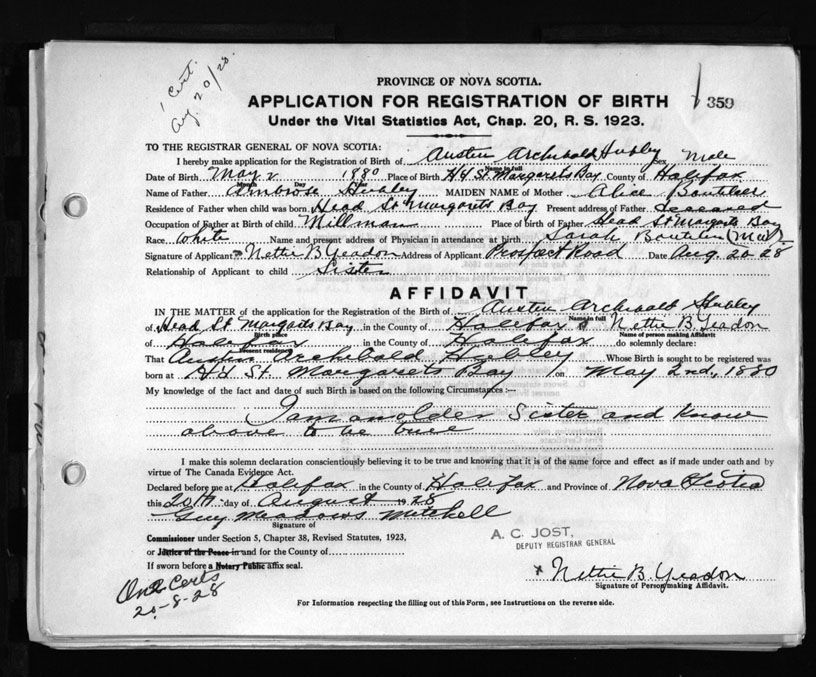 1 Cert.
Aug. 20/28.
PROVINCE OF NOVA SCOTIA.
APPLICATION FOR REGISTRATION OF BIRTH
359
Under the Vital Statistics Act, Chap. 20, R. S. 1923.
TO THE REGISTRAR GENERAL OF NOVA SCOTIA:
I hereby make application for the Registration of Birth of Austin Archibald Hubley Sex Male
Name in full
Date of Birth May 2 1880 Place of Birth Hd St. Margarets Bay County of Halifax
Month Day
Name of Father Ambrose Hubley MAIDEN NAME of Mother Alice Boutilier
Residence of Father when child was born Head St Margarets Bay Present address of Father Deceased
Occupation of Father at Birth of child Millman Place of birth of Father Head St Margarets Bay
Race White Name and present address of Physician in attendance at birth Sarah
Signature of Applicant Nettie B. Yeadon Address of Applicant Prospect Road Date Aug. 20 28
Relationship of Applicant to child Sister
AFFIDAVIT
IN THE MATTER of the application for the Registration of the Birth of Austin Archibald Hubley
Name in full
of Head St. Margarets Bay in the County of Halifax I Nettie B. Yeadon
Birth place Name of person making Affidavit
of Halifax in the County of Halifax do solemnly declare:
Present residence
That Austin Archibald Hubley Whose Birth is sought to be registered was
born at Hd St. Margarets Bay on May 2nd, 1880
My knowledge of the fact and date of such Birth is based on the following Circumstances:—
I am an older Sister and know
above to be true
I make this solemn declaration conscientiously believing it to be true and knowing that it is of the same force and effect as if made under oath and by
virtue of The Canada Evidence Act.
Declared before me at Halifax in the County of Halifax and Province of Nova Scotia
this 20th day of August 1928
Guy Meadows Mitchell
Signature of
Commissioner under Section 5, Chapter 38, Revised Statutes, 1923,
or Justice of the Peace in and for the County of
If sworn before a Notary Public affix seal.
A. C. JOST,
DEPUTY REGISTRAR GENERAL
x Nettie B. Yeadon
Signature of Person making Affidavit.
One Certs
20-8-28
For Information respecting the filling out of this Form, see Instructions on the reverse side.